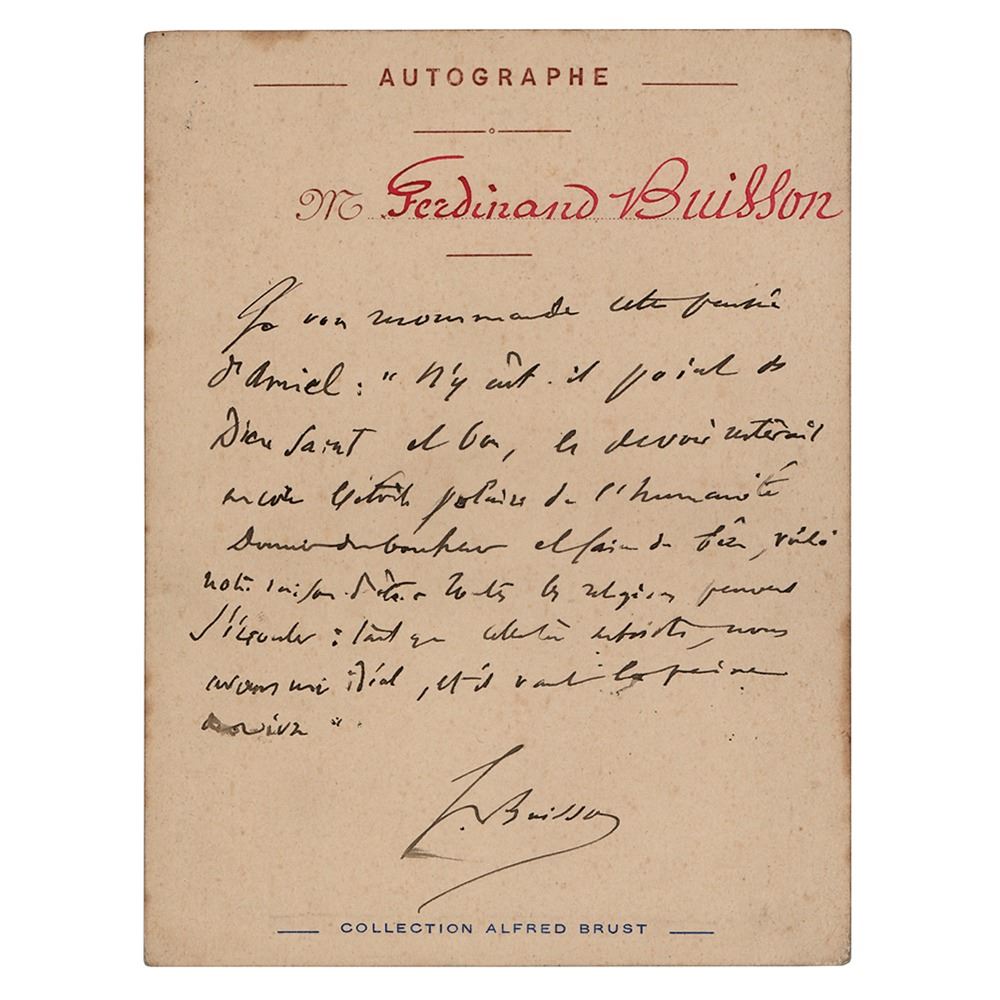 AUTOGRAPHE
M Ferdinand Buisson
Je vous recommande cette pensée
d'Amiel : " N'y eût-il point de
Dieu saint et bon, le devoir resterait
encore l'étoile polaire de l'humanité
Donner du bonheur et faire du bien, voilà
notre raison d'être Toutes les religions peuvent
s'écrouler : tant que celle-là subsiste, nous
avons un idéal, et il vaut la peine
de vivre "
F. Buisson
COLLECTION ALFRED BRUST